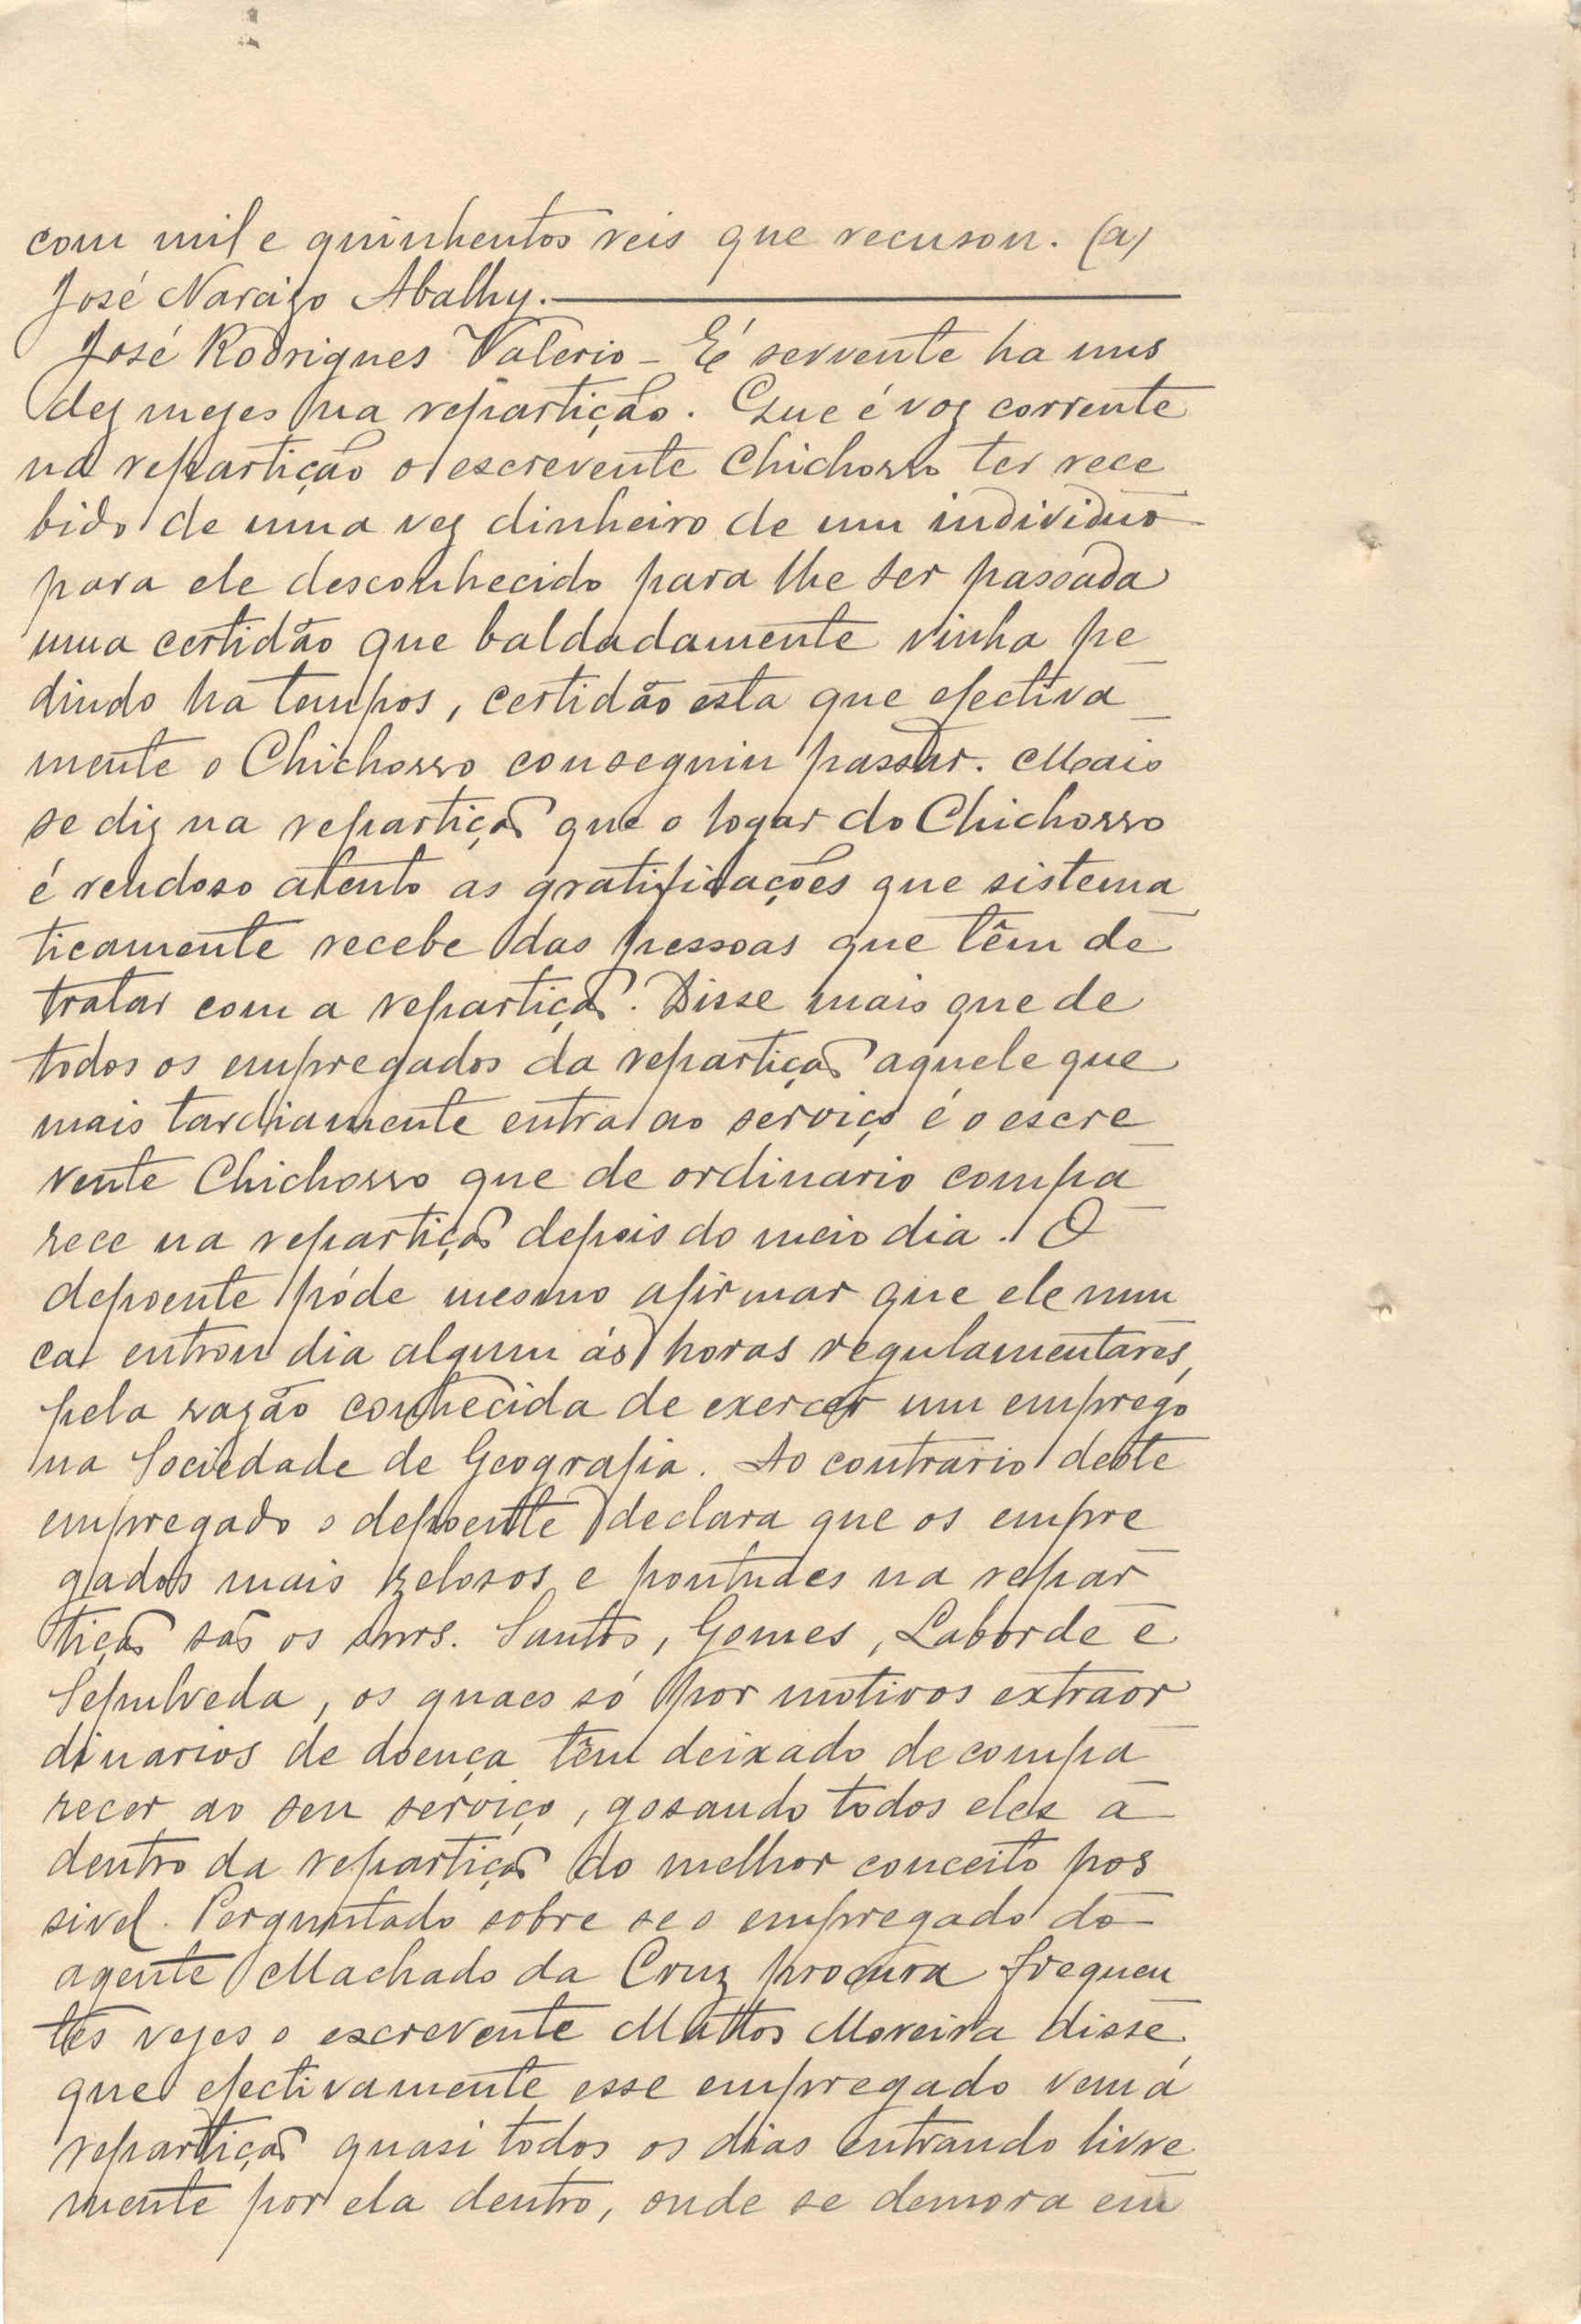 com mil e quinhentos reis que recusou. (a)
José Narcizo Abalhy.
José Rodrigues Valerio - É servente ha uns
dez mezes na repartição. Que é voz corrente
na repartição o escrevente Chichorro ter rece
bido de uma vez dinheiro de um individuo
para ele desconhecido para lhe ser passada
uma certidão que baldadamente vinha pe
dindo ha tempos, certidão esta que efectiva
mente o Chichorro conseguiu passar. Mais
se diz na repartição que o logar do Chichorro
é rendoso atento as gratificações que sistema
ticamente recebe das pessoas que têm de
tratar com a repartição. Disse mais que de
todos os empregados da repartição aquele que
mais tardiamente entra ao serviço é o escre
vente Chichorro que de ordinario compa
rece na repartição depois do meio dia. O
depoente póde mesmo afirmar que ele nun
ca entrou dia algum ás horas regulamentares,
pela razão conhecida de exercer um emprego
na Sociedade de Geografia. Ao contrario deste
empregado o depoente declara que os empre
gados mais zelosos e pontudes na repar
tição são os snrs. Santos, Gomes, Laborde e
Sepulveda, os quaes só por motivos extraor
dinarios de doença têm deixado de compa
recer ao seu serviço, gosando todos eles a
dentro da repartição do melhor conceito pos
sivel. Perguntado sobre se o empregado do
agente Machado da Cruz procura frequen
tes vezes o escrevente Mattos Moreira disse
que efectivamente esse empregado vem á
repartição quasi todos os dias entrando livre
mente por ela dentro, onde se demora em